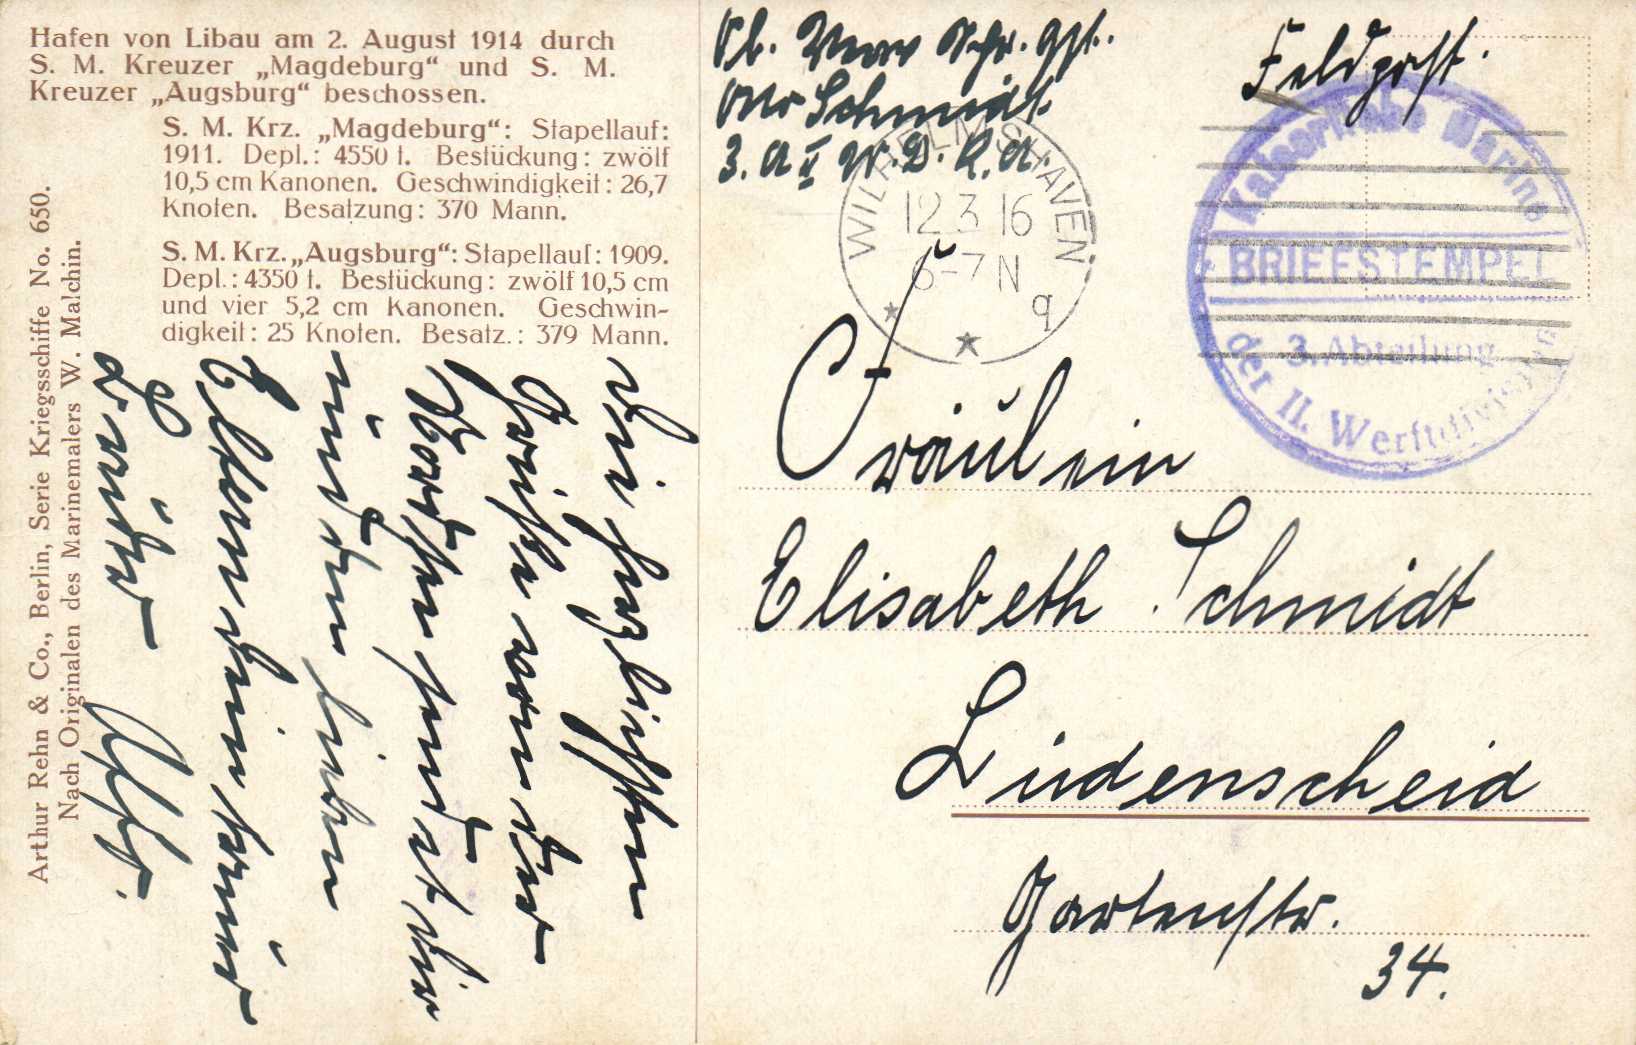 Hafen von Libau am 2. August 1914 durch
S. M. Kreuzer „Magdeburg“ und S. M.
Kreuzer „Augsburg“ beschossen.
S. M. Krz. „Magdeburg“: Stapellauf:
1911. Depl.: 4550 t. Bestückung: zwölf
10,5 cm Kanonen. Geschwindigkeit: 26,7
Knoten. Besatzung: 370 Mann.
S. M. Krz. „Augsburg“: Stapellauf: 1909.
Depl.: 4350 t. Bestückung: zwölf 10,5 cm
und vier 5,2 cm Kanonen. Geschwin-
digkeit: 25 Knoten. Besatz.: 379 Mann.
Arthur Rehn & Co., Berlin, Serie Kriegsschiffe No. 650.
Nach Originalen des Marinemalers W. Malchin.
Die herzlichsten
Grüße von der
sendet dir
und den lieben
Eltern dein
Bruder
Feldpost.
Otto Schmidt.
3. A II W. D. K. A.
WILHELMSHAVEN
12 3 16
6-7 N
q
Kaiserliche Marine
BRIEFSTEMPEL
3. Abteilung
der II. Werftdivision
Fräulein
Elisabeth Schmidt
Lüdenscheid
Gartenstr.
34.